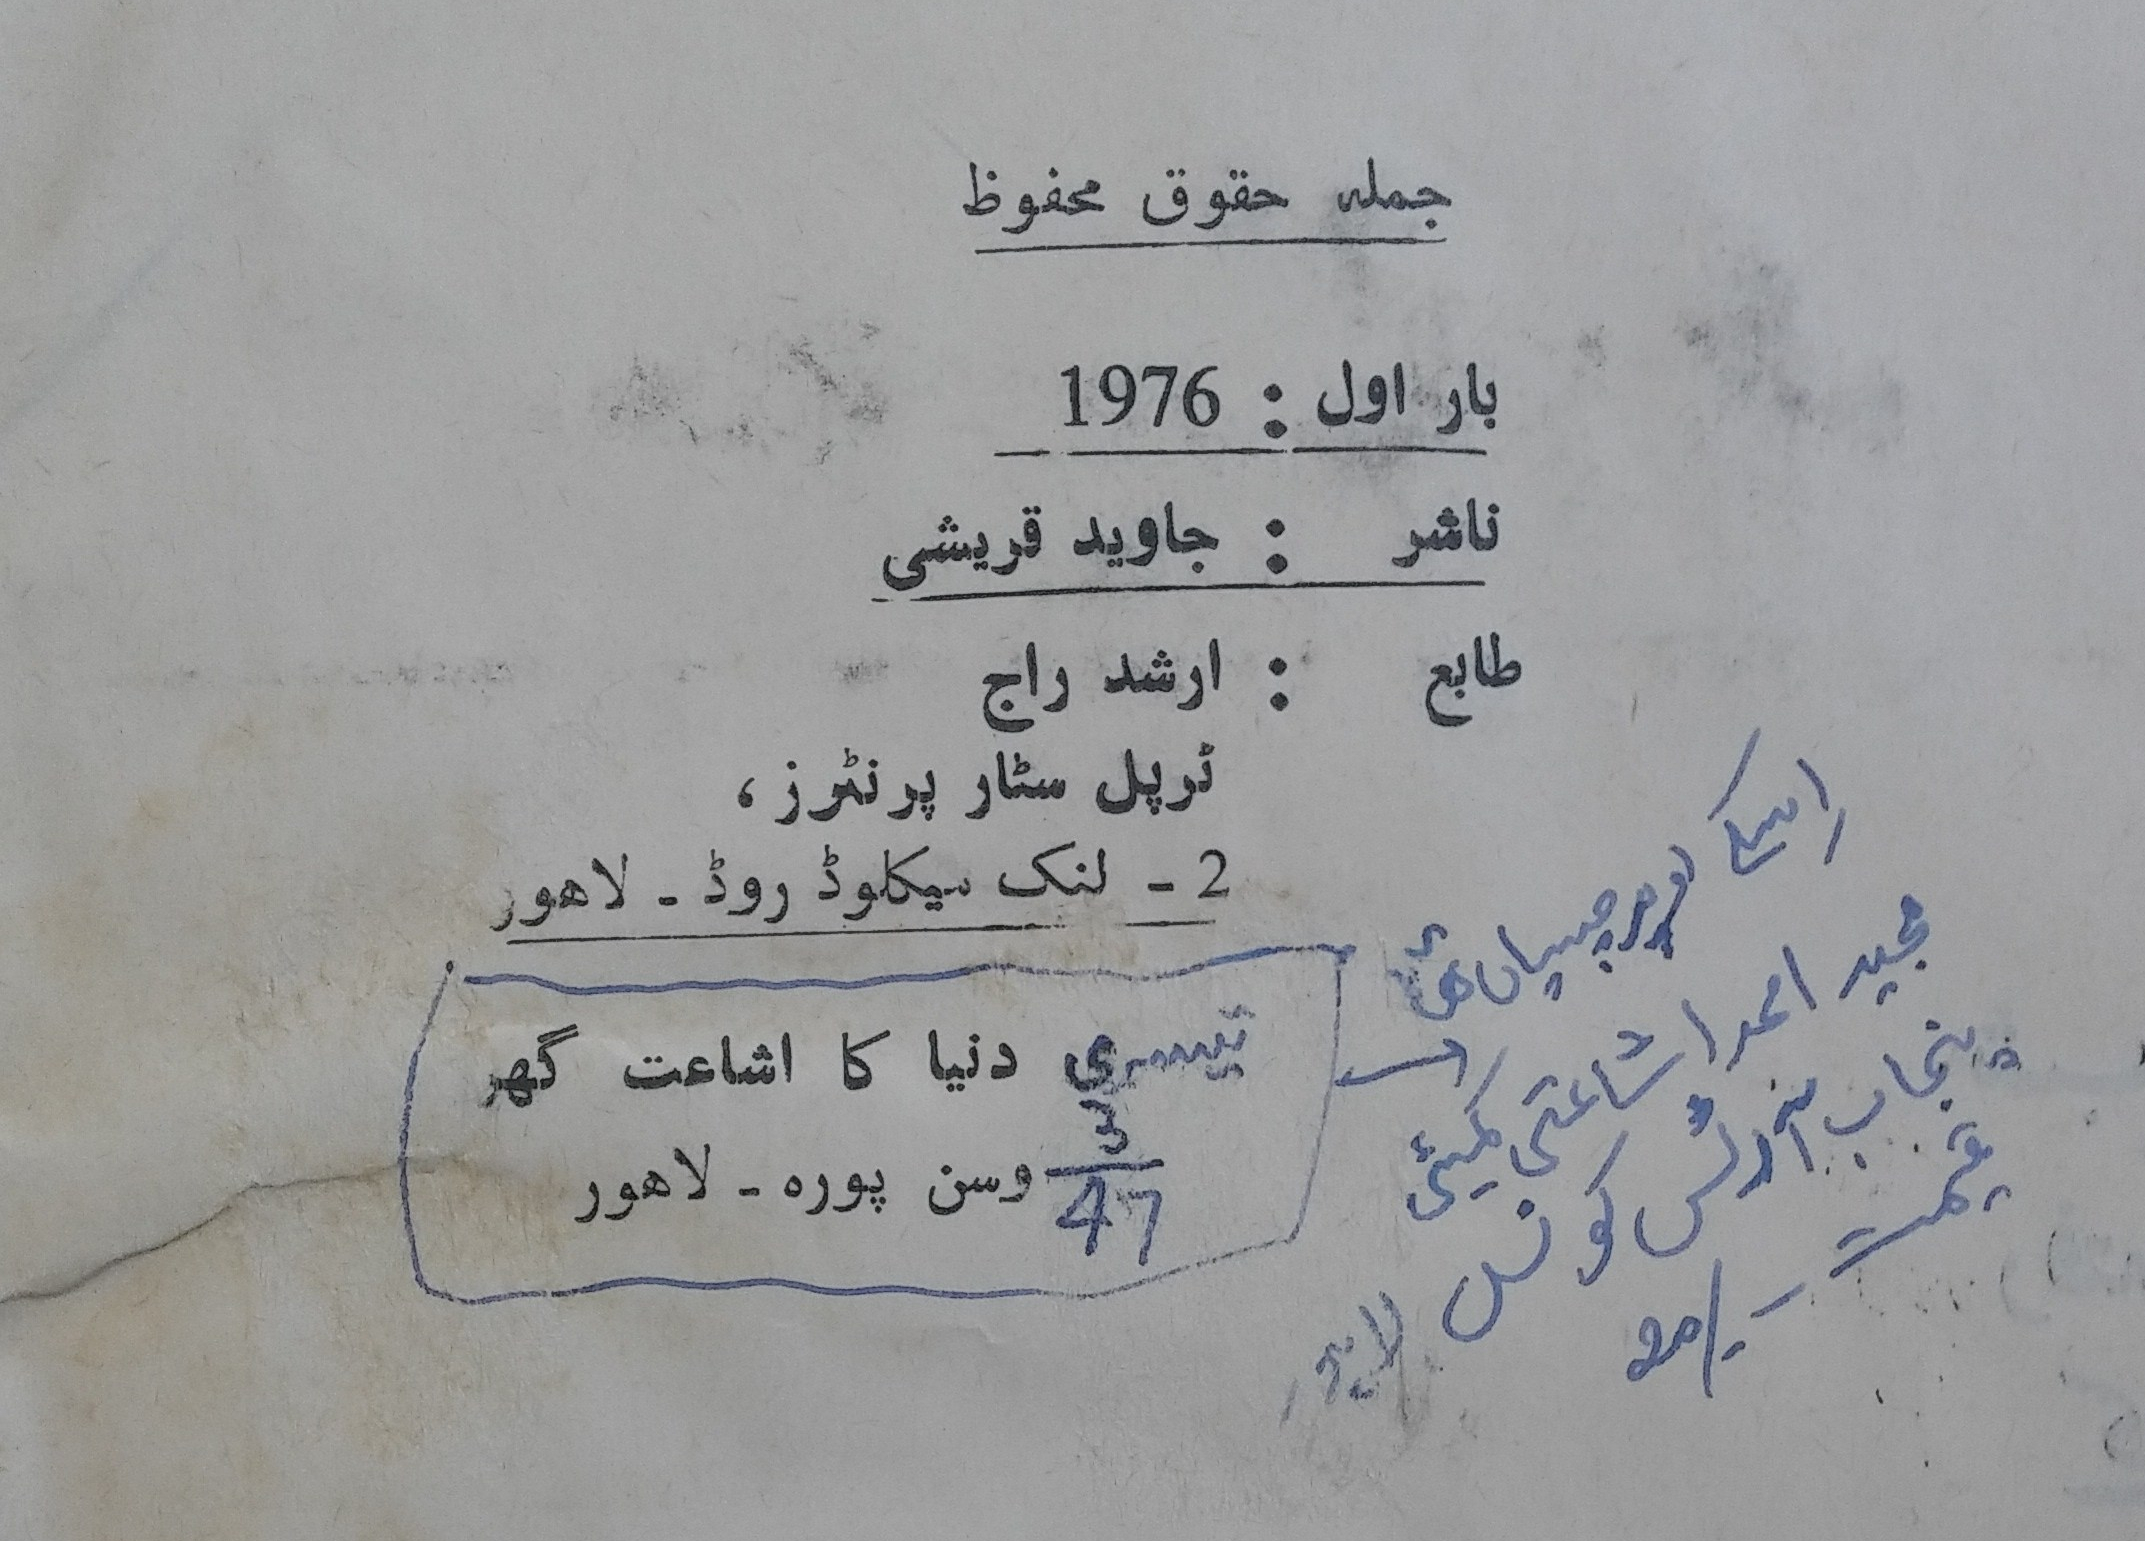 جملہ حقوق محفوظ
بار اول : 1976
ناشر : جاوید قریشی
طابع : ارشد راج
ٹرپل سٹار پرنٹرز،
2 - لنک میکلوڈ روڈ - لاھور
تیسری دنیا کا اشاعت گھر
3/47 وسن پورہ - لاھور
اسکے اوپر چسپاں
مجید امجد اشاعتی کمیٹی
پنجاب آرٹس کونسل لاہور
قیمت